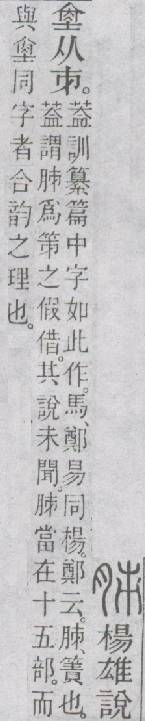 胏 楊雄說
𡎐从𠂔。
葢訓纂篇中字如此作。馬、鄭易同楊。鄭云。胏、簀也。
葢謂胏爲笫之假借。其說未聞。胏當在十五部。而
與𡎐同字者合韵之理也。